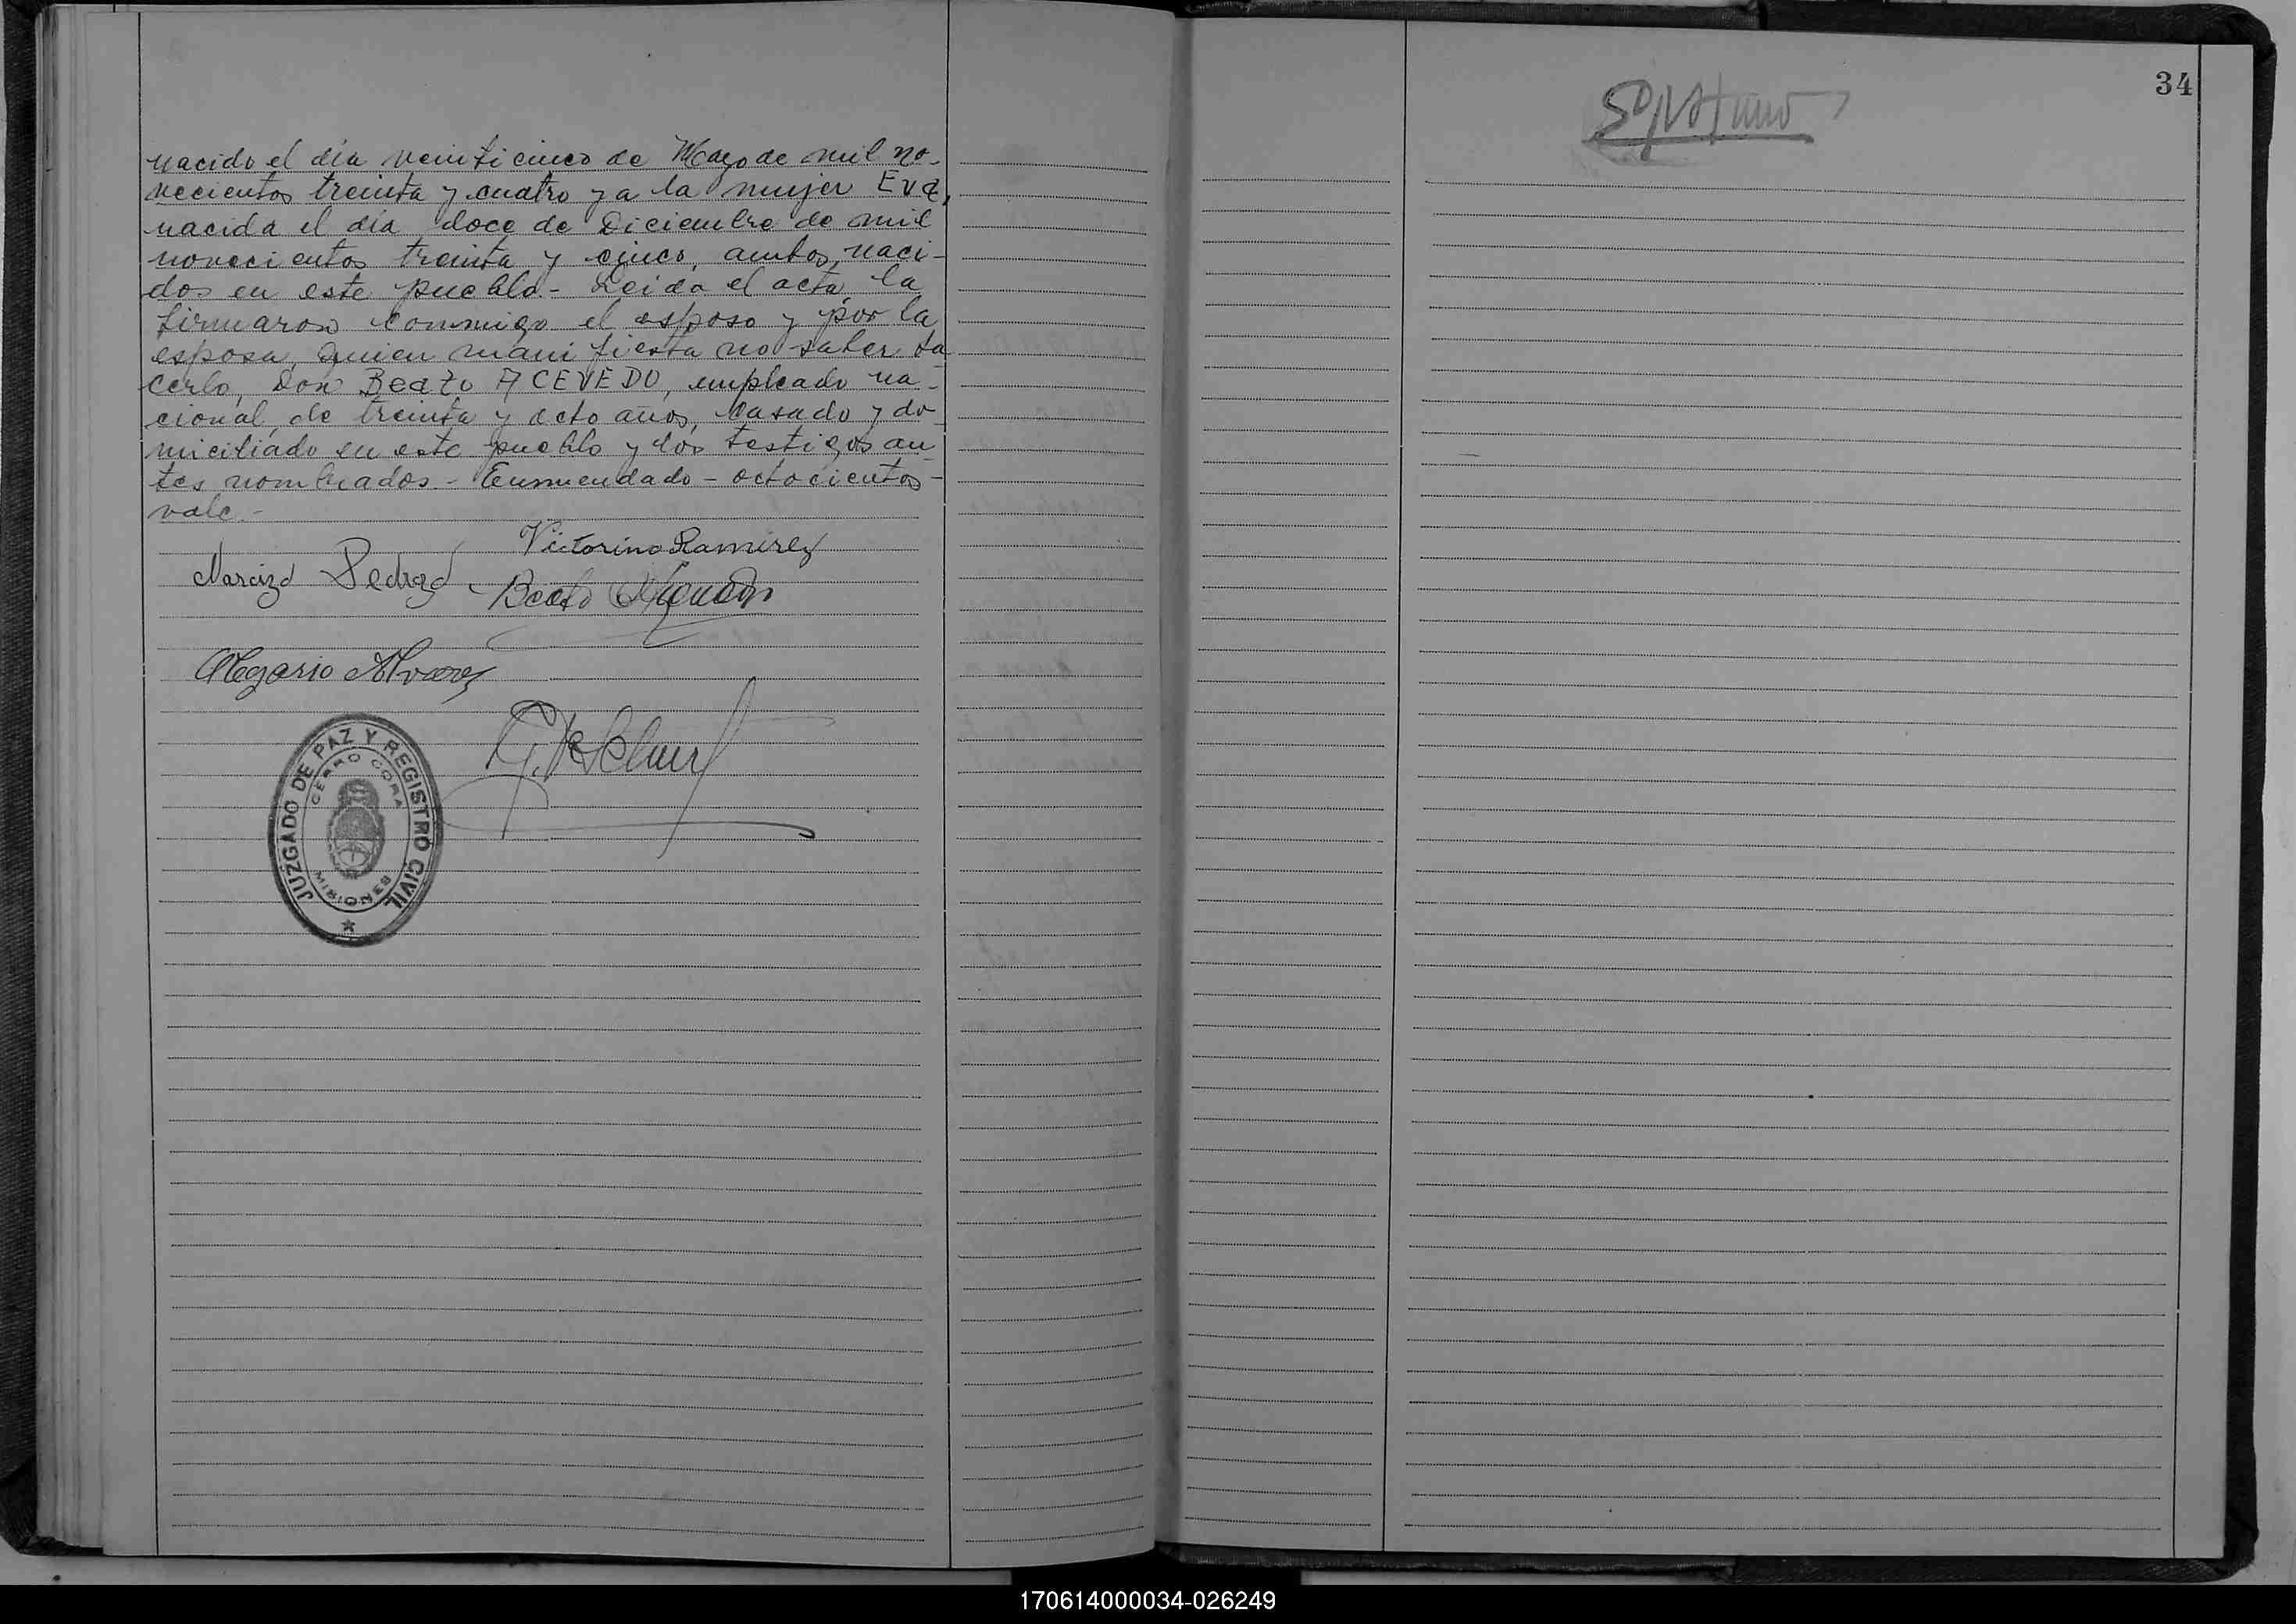 nacido el día veinticinco de Mayo de mil no-
vecientos treinta y cuatro y a la mujer Eva,
nacida el día doce de Diciembre de mil
novecientos treinta y cinco, ambos naci-
dos en este pueblo.- Leida el acta, la
firmaron conmigo el esposo y por la
esposa, quien manifiesta no saber ha
cerlo, Don Beato ACEVEDO, empleado na-
cional, de treinta y octo años, casado y do-
miciliado en este pueblo y los testigos an
tes nombrados - Enmendado - octocientos -
vale.-
Victorino Ramirez
Narcizo Pedrozo
Beato
Olegario Alvarez
JUZGADO DE PAZ Y REGISTRO CIVIL
CERRO CORA
MISIONES
34
170614000034-026249